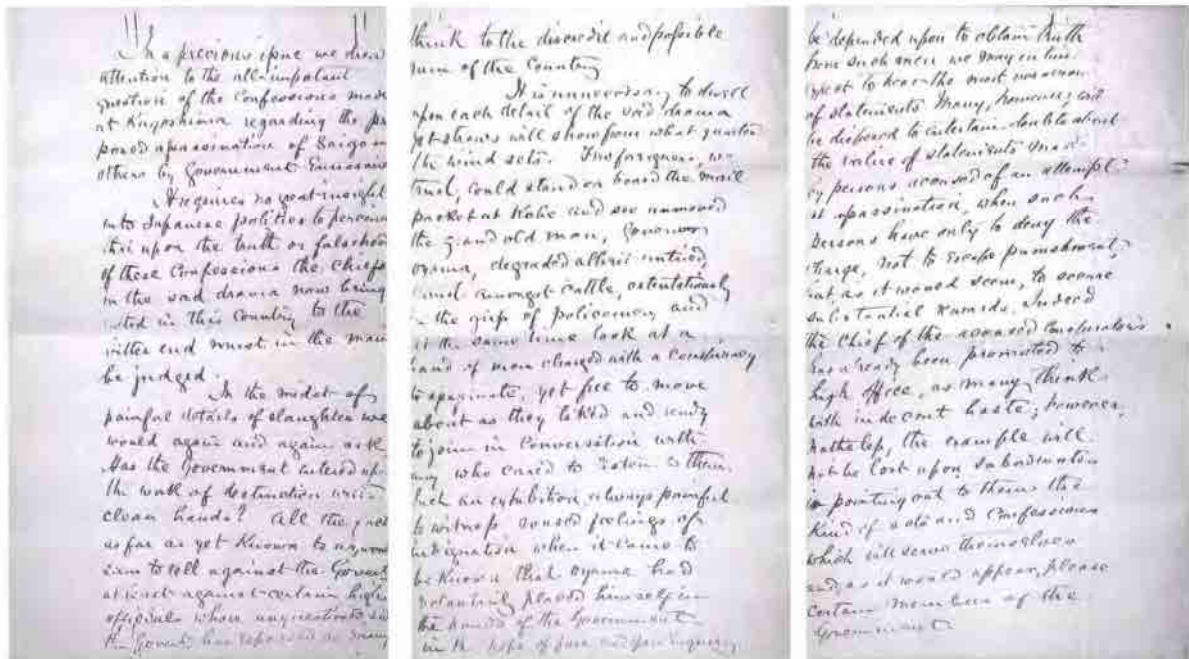 In a precious issue we drew
attention to the all-important
question of the Confessions made
at Kagoshima regarding the pro
posed assassination of Saigo and
others by Government Emissaries
It requires no great insight
into Japanese politics to perceive
that upon the truth or falsehood
of these Confessions the Chiefs
in the sad drama now being
acted in this Country to the
bitter end must in the main
be judged.
In the midst of
painful details of slaughter we
would again and again ask
Has the Government entered upon
the work of destruction with
clean hands? All the facts
as far as yet Known to
seem to tell against the Government
at least against certain high
officials whose
the Governt has reposed as many
think to the discredit and possible
ruin of the Country
It is unnecessary to dwell
upon each detail of the sad drama
yet straws will show from what quarter
the wind sets. Few foreigners, we
trust, could stand on board the mail
packet at Kobe and see unmoved
the grand old man, Governor
Oyama, degraded
amongst cattle, ostentatiously
in the grip of policemen, and
at the same time look at a
band of men charged with a Conspiracy
to assassinate, yet free to move
about as they liked and ready
to join in Conversation with
any who cared to listen to them.
Such an exhibition, always painful
to witness, roused feelings of
indignation when it came to
be Known that Oyama had
voluntarily placed himself in
the hands of the Government
in the hope of fair and open inquiry
be depended upon to obtain truth
from such men we may in time
expect to hear the most
of statements. Many, however, will
be disposed to entertain doubts about
the value of statements made
by persons accused of an attempt
at assassination, when such
persons have only to deny the
charge, not to escape punishment,
but as it would seem, to secure
substantial rewards. Indeed
the Chief of the accused Conspirators
has already been promoted to
high office, as many think
with indecent haste; however,
the example will
not be lost upon subordinates
in pointing out to them the
Kind of acts and Confessions
which will serve themselves
and as it would appear, please
certain members of the
Government